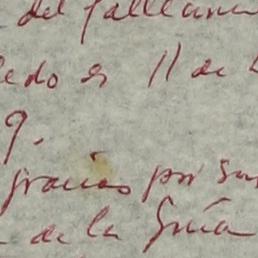 del fallecimi
edo es 11 de
9.
gracias por su
de la Guía